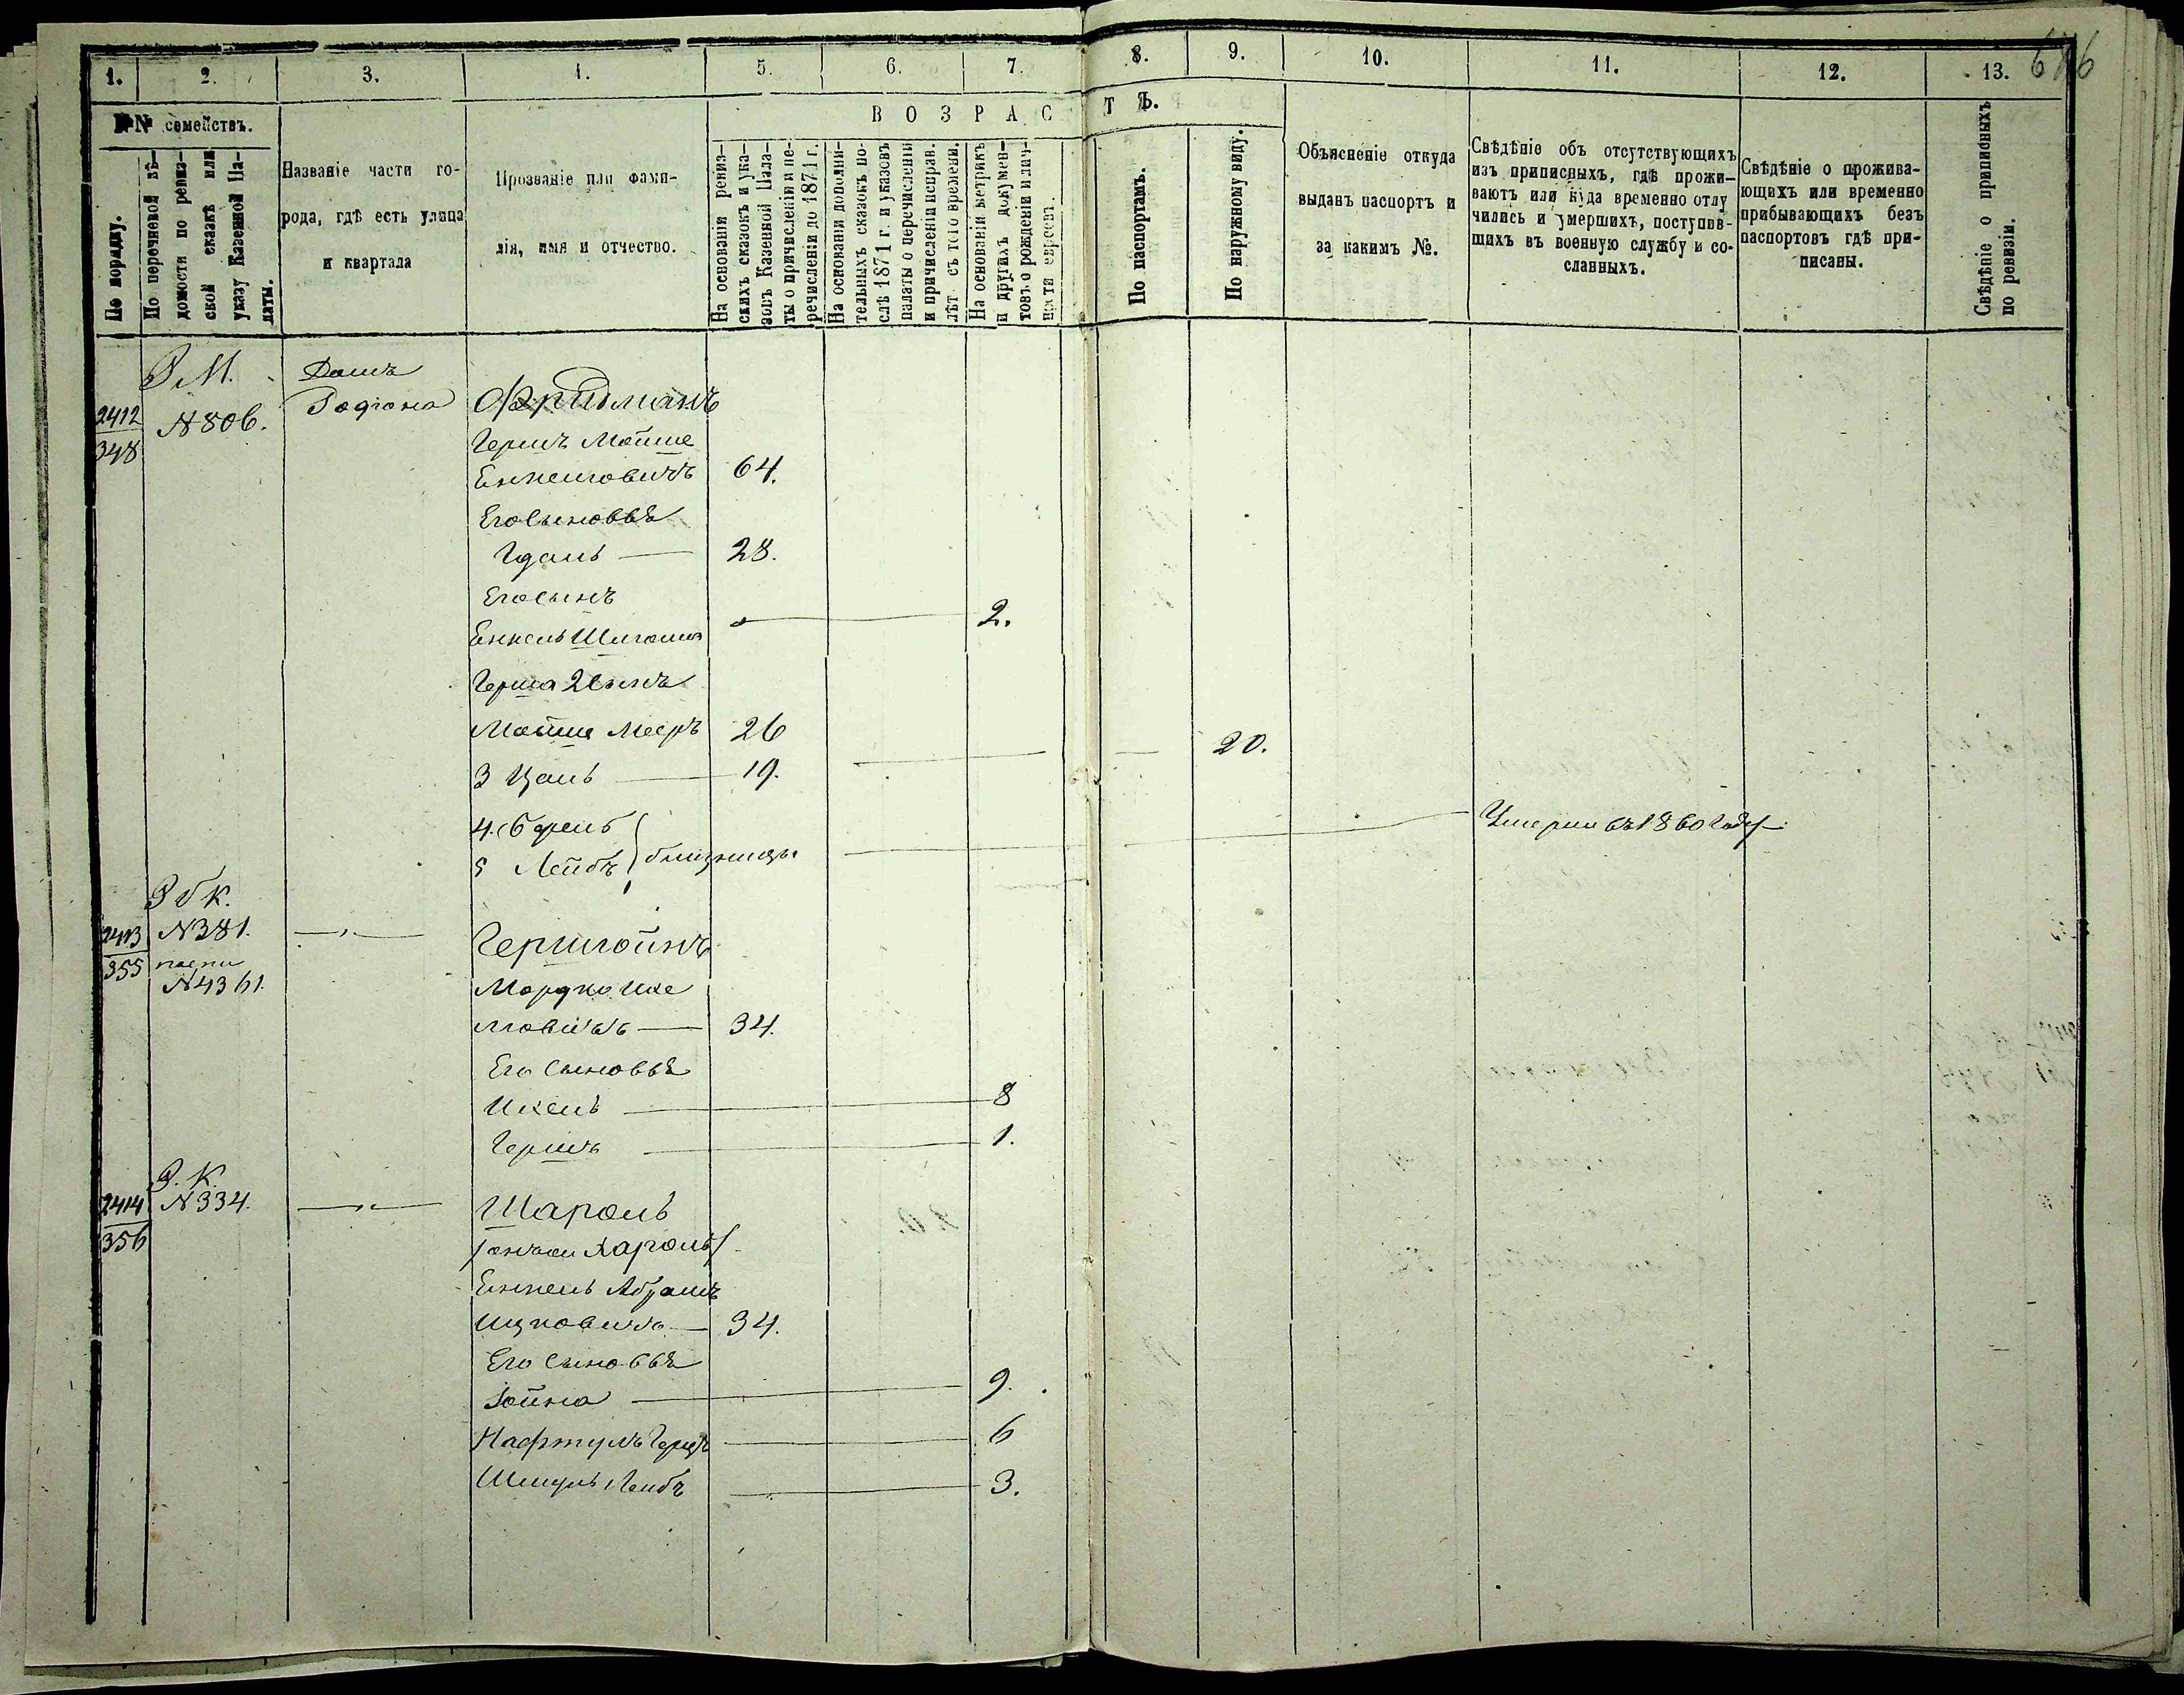 676
1. 2. 3. 4. 5. 6. 7. 8. 9. 10. 11. 12. 13.
№№ семействъ.
По порядку.
По перечневой вѣ-
домости по ревиз-
ской сказкѣ или
указу Казенной Па-
латы.
Названіе части го-
рода, гдѣ есть улица
и квартала
Прозваніе или фами-
лія, имя и отчество.
ВОЗРАСТЪ.
На основаніи ревиз-
скихъ сказокъ и ука-
зовъ Казенной Пала-
ты о причисленіи и пе-
речислени до 1871 г.
На основани дополни-
тельныхъ сказокъ по-
слѣ 1871 г. и указовъ
палаты о перечисленіи
и причисленіи исправ.
лѣт съ того времени.
На основаніи метрикъ
и другихъ докумен-
товъ о рожденіи и лич-
ности евреевъ.
По паспортамъ.
По наружному виду.
Объясненіе откуда
выданъ паспортъ и
за какимъ №.
Свѣдѣніе объ отсутствующихъ
изъ приписныхъ, гдѣ прожи-
ваютъ или куда временно отлу
чились и умершихъ, поступив-
шихъ въ военную службу и со-
сланныхъ.
Свѣдѣніе о прожива-
ющихъ или временно
прибывающихъ безъ
паспортовъ гдѣ при-
писаны.
Свѣдѣніе о приписныхъ
по ревизіи.
Р. М. Домъ
2412 N 806. Фридманъ
348
Гершъ Мошше
64.
Его Сыновья
28.
Его сынъ
Енкель 2.
Герша 2 Сынъ
Мошше Мееръ 26
3 19. 20.
4.
5 Лейбъ близнецы Умерли въ 1860 году
2413 N 381. Герштойнъ
355
N 4361. Мордко Ике
34.
Его Сыновья
Икель 8
Гершъ 1.
Р. К.
2414 N 334. Шароль
356
Енкель Абрамъ
Ицковичъ 34.
Его Сыновья
Іойна 9.
Нафтулъ Герцъ 6
Шмуль Лейбъ 3.